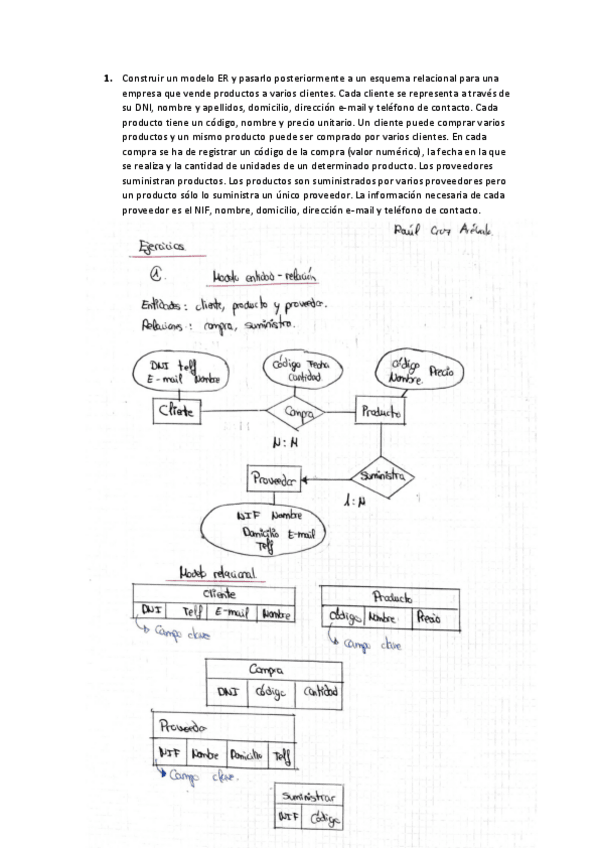 1. Construir un modelo ER y pasarlo posteriormente a un esquema relacional para una
empresa que vende productos a varios clientes. Cada cliente se representa a través de
su DNI, nombre y apellidos, domicilio, dirección e-mail y teléfono de contacto. Cada
producto tiene un código, nombre y precio unitario. Un cliente puede comprar varios
productos y un mismo producto puede ser comprado por varios clientes. En cada
compra se ha de registrar un código de la compra (valor numérico), la fecha en la que
se realiza y la cantidad de unidades de un determinado producto. Los proveedores
suministran productos. Los productos son suministrados por varios proveedores pero
un producto sólo lo suministra un único proveedor. La información necesaria de cada
proveedor es el NIF, nombre, domicilio, dirección e-mail y teléfono de contacto.
Raúl Cruz
Ejercicios
1. Modelo entidad-relación
Entidades: cliente, producto y proveedor.
Relaciones: compra, suministro.
DNI telf
E-mail Nombre
Código Fecha
Cantidad
Código Precio
Nombre
Cliente
Compra
Producto
N:M
Proveedor
Suministra
1:N
NIF Nombre
Domicilio E-mail
Telf
Modelo relacional
Cliente
DNI Telf E-mail Nombre
Campo clave
Producto
Código Nombre Precio
Campo clave
Compra
DNI Código Cantidad
Proveedor
NIF Nombre Domicilio Telf
Campo clave.
Suministrar
NIF Código